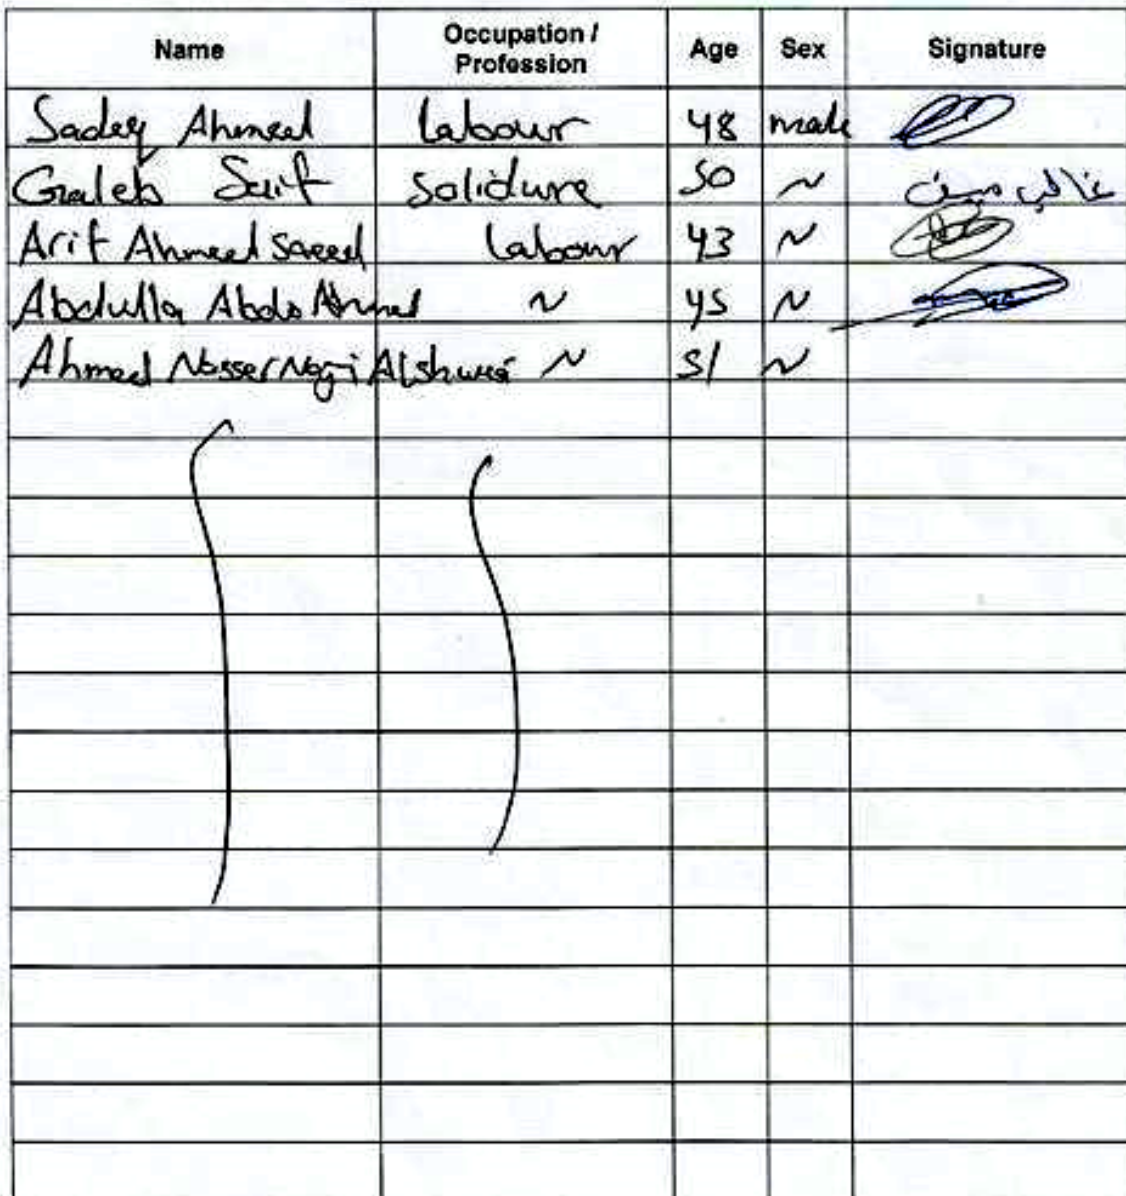 Name Occupation / Profession Age Sex Signature
Sadeq Ahmed labour 48 male
Galeb Saif solidure 50 ~ غالب سيف
Arif Ahmed Saeed labour 43 ~
Abdulla Abdo Ahmed ~ 45 ~
Ahmed Nasser Nagi ~ 51 ~